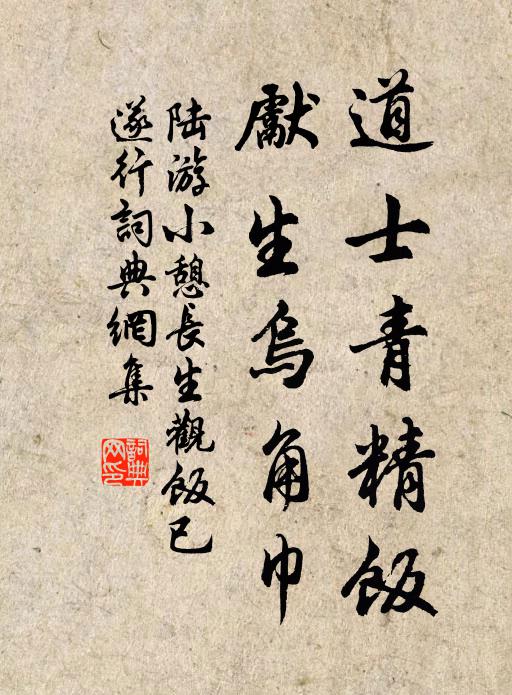 道士青精飯
獻生烏角巾
陆游小憩長生觀飯已
遂行詞典網集
詞典网印